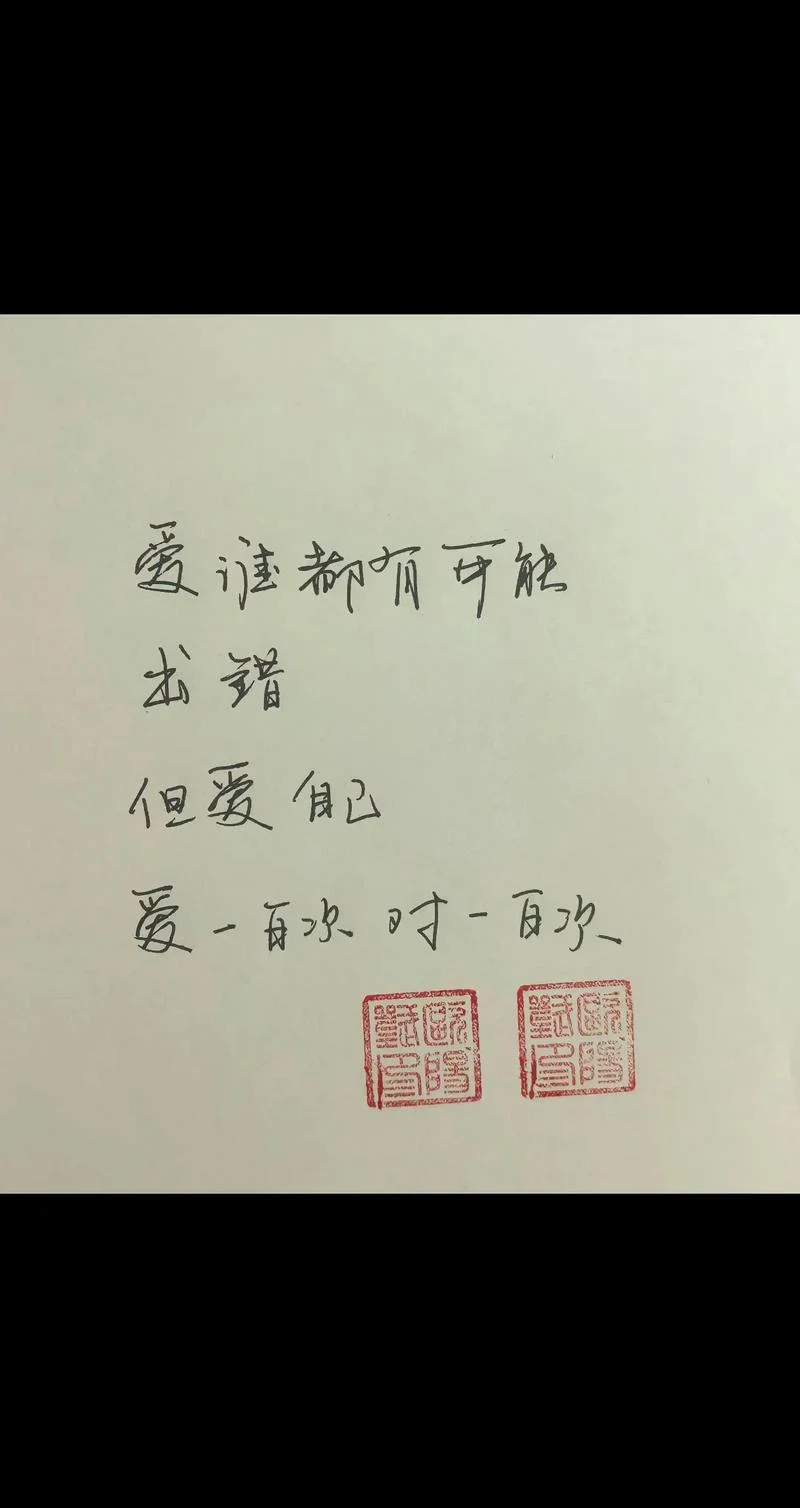 爱谁都有可能
出错
但爱自己
爱一百次 对一百次